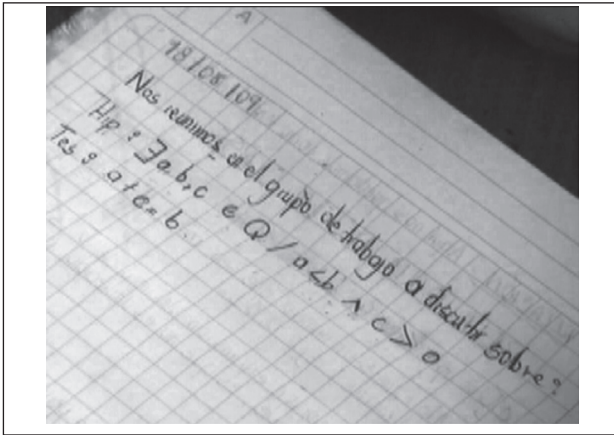 A
18/08/09
Nos reunimos en el grupo de trabajo a discutir sobre:
Hip: ∃ a,b,c ∈ Q / a<b ∧ c>0
Tes: a+c=b